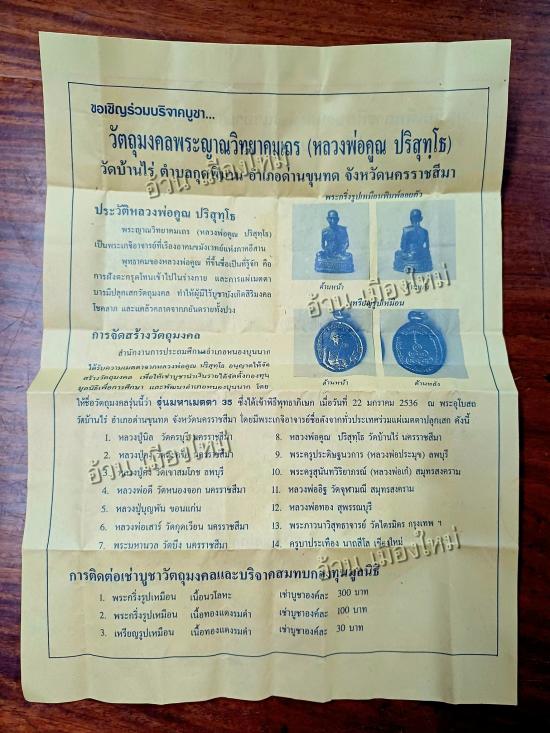 ขอเชิญร่วมบริจาคบูชา...
วัตถุมงคลพระญาณวิทยาคมเถร (หลวงพ่อคูณ ปริสุทฺโธ)
วัดบ้านไร่ ตำบลกุดพิมาน อำเภอด่านขุนทด จังหวัดนครราชสีมา
ประวัติหลวงพ่อคูณ ปริสุทฺโธ
พระญาณวิทยาคมเถร (หลวงพ่อคูณ ปริสุทฺโธ)
เป็นพระเกจิอาจารย์ที่เรืองอาคมขมังเวทย์แห่งภาคอีสาน
พุทธาคมของหลวงพ่อคูณ ที่ขึ้นชื่อเป็นที่รู้จัก คือ
การฝังตะกรุดโทนเข้าไปในร่างกาย และการแผ่เมตตา
บารมีปลุกเสกวัตถุมงคล ทำให้ผู้มีไว้บูชาบังเกิดสิริมงคล
โชคลาภ และแคล้วคลาดจากภยันตรายทั้งปวง
พระกริ่งรูปเหมือนพิมพ์ลอยตัว
ด้านหน้า
เหรียญรูปเหมือน
ด้านหน้า
ด้านหลัง
การจัดสร้างวัตถุมงคล
สำนักงานการประถมศึกษาอำเภอหนองบุนนาก
ได้รับความเมตตาจากหลวงพ่อคูณ ปริสุทฺโธ อนุญาตให้จัด
สร้างวัตถุมงคล เพื่อให้เช่าบูชานำเงินรายได้จัดตั้งกองทุน
มูลนิธิเพื่อการศึกษา และพัฒนาอำเภอหนองบุนนาก โดย
ให้ชื่อวัตถุมงคลรุ่นนี้ว่า รุ่นมหาเมตตา 35 ซึ่งได้เข้าพิธีพุทธาภิเษก เมื่อวันที่ 22 มกราคม 2536 ณ พระอุโบสถ
วัดบ้านไร่ อำเภอด่านขุนทด จังหวัดนครราชสีมา โดยมีพระเกจิอาจารย์ชื่อดังจากทั่วประเทศร่วมแผ่เมตตาปลุกเสก ดังนี้
1. หลวงปู่นิล วัดครบุรี นครราชสีมา
2. หลวงปู่ นครราชสีมา
3. หลวงปู่ วัดเขาสมโภช ลพบุรี
4. หลวงพ่อดี วัดหนองจอก นครราชสีมา
5. หลวงปู่บุญพัน ขอนแก่น
6. หลวงพ่อเสาร์ วัดกุดเวียน นครราชสีมา
7. พระมหานวล วัดบึง นครราชสีมา
8. หลวงพ่อคูณ ปริสุทฺโธ วัดบ้านไร่ นครราชสีมา
9. พระครูประดิษฐนวการ (หลวงพ่อประมุข) ลพบุรี
10. พระครูสุนันทวิริยาภรณ์ (หลวงพ่อเก๋) สมุทรสงคราม
11. หลวงพ่ออิฐ วัดจุฬามณี สมุทรสงคราม
12. หลวงพ่อทอง สุพรรณบุรี
13. พระภาวนาวิสุทธาจารย์ วัดไตรมิตร กรุงเทพ ฯ
14. ครูบาประเทือง นาถสีโล เชียงใหม่
การติดต่อเช่าบูชาวัตถุมงคลและบริจาคสมทบกองทุนมูลนิธิ
1. พระกริ่งรูปเหมือน เนื้อนวโลหะ เช่าบูชาองค์ละ 300 บาท
2. พระกริ่งรูปเหมือน เนื้อทองแดงรมดำ เช่าบูชาองค์ละ 100 บาท
3. เหรียญรูปเหมือน เนื้อทองแดงรมดำ เช่าบูชาองค์ละ 30 บาท
อ้วน เมืองใหม่
อ้วน เมืองใหม่
อ้วน เมืองใหม่
อ้วน เมืองใหม่